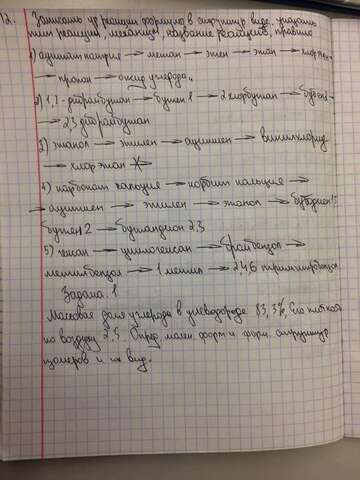 12. Записать ур реакции формулы в структур виде, указать
тип реакции, механизм, название реакций, правило
1) ацетат натрия → метан → этен → этан → хлор
→ пропан → оксид углерода.
2) 1,2-дибромбутан → бутен 1 → 2 хлорбутан →
→ 2,3 дибромбутан
3) этанол → этилен → ацетилен → винилхлорид
→ хлор этан
4) карбонат кальция → карбид кальция →
→ ацетилен → этилен → этанол →
бутен 2 → 2,3
5) гексан → циклогексан → →
метилбензол → 1 метил → 2,4,6
Задача. 1
Массовая доля углерода в углеводороде 83,3%, Его плотность
по воздуху 2,5. Опред. молек. форм и форм. структур
изомеров и их вид.